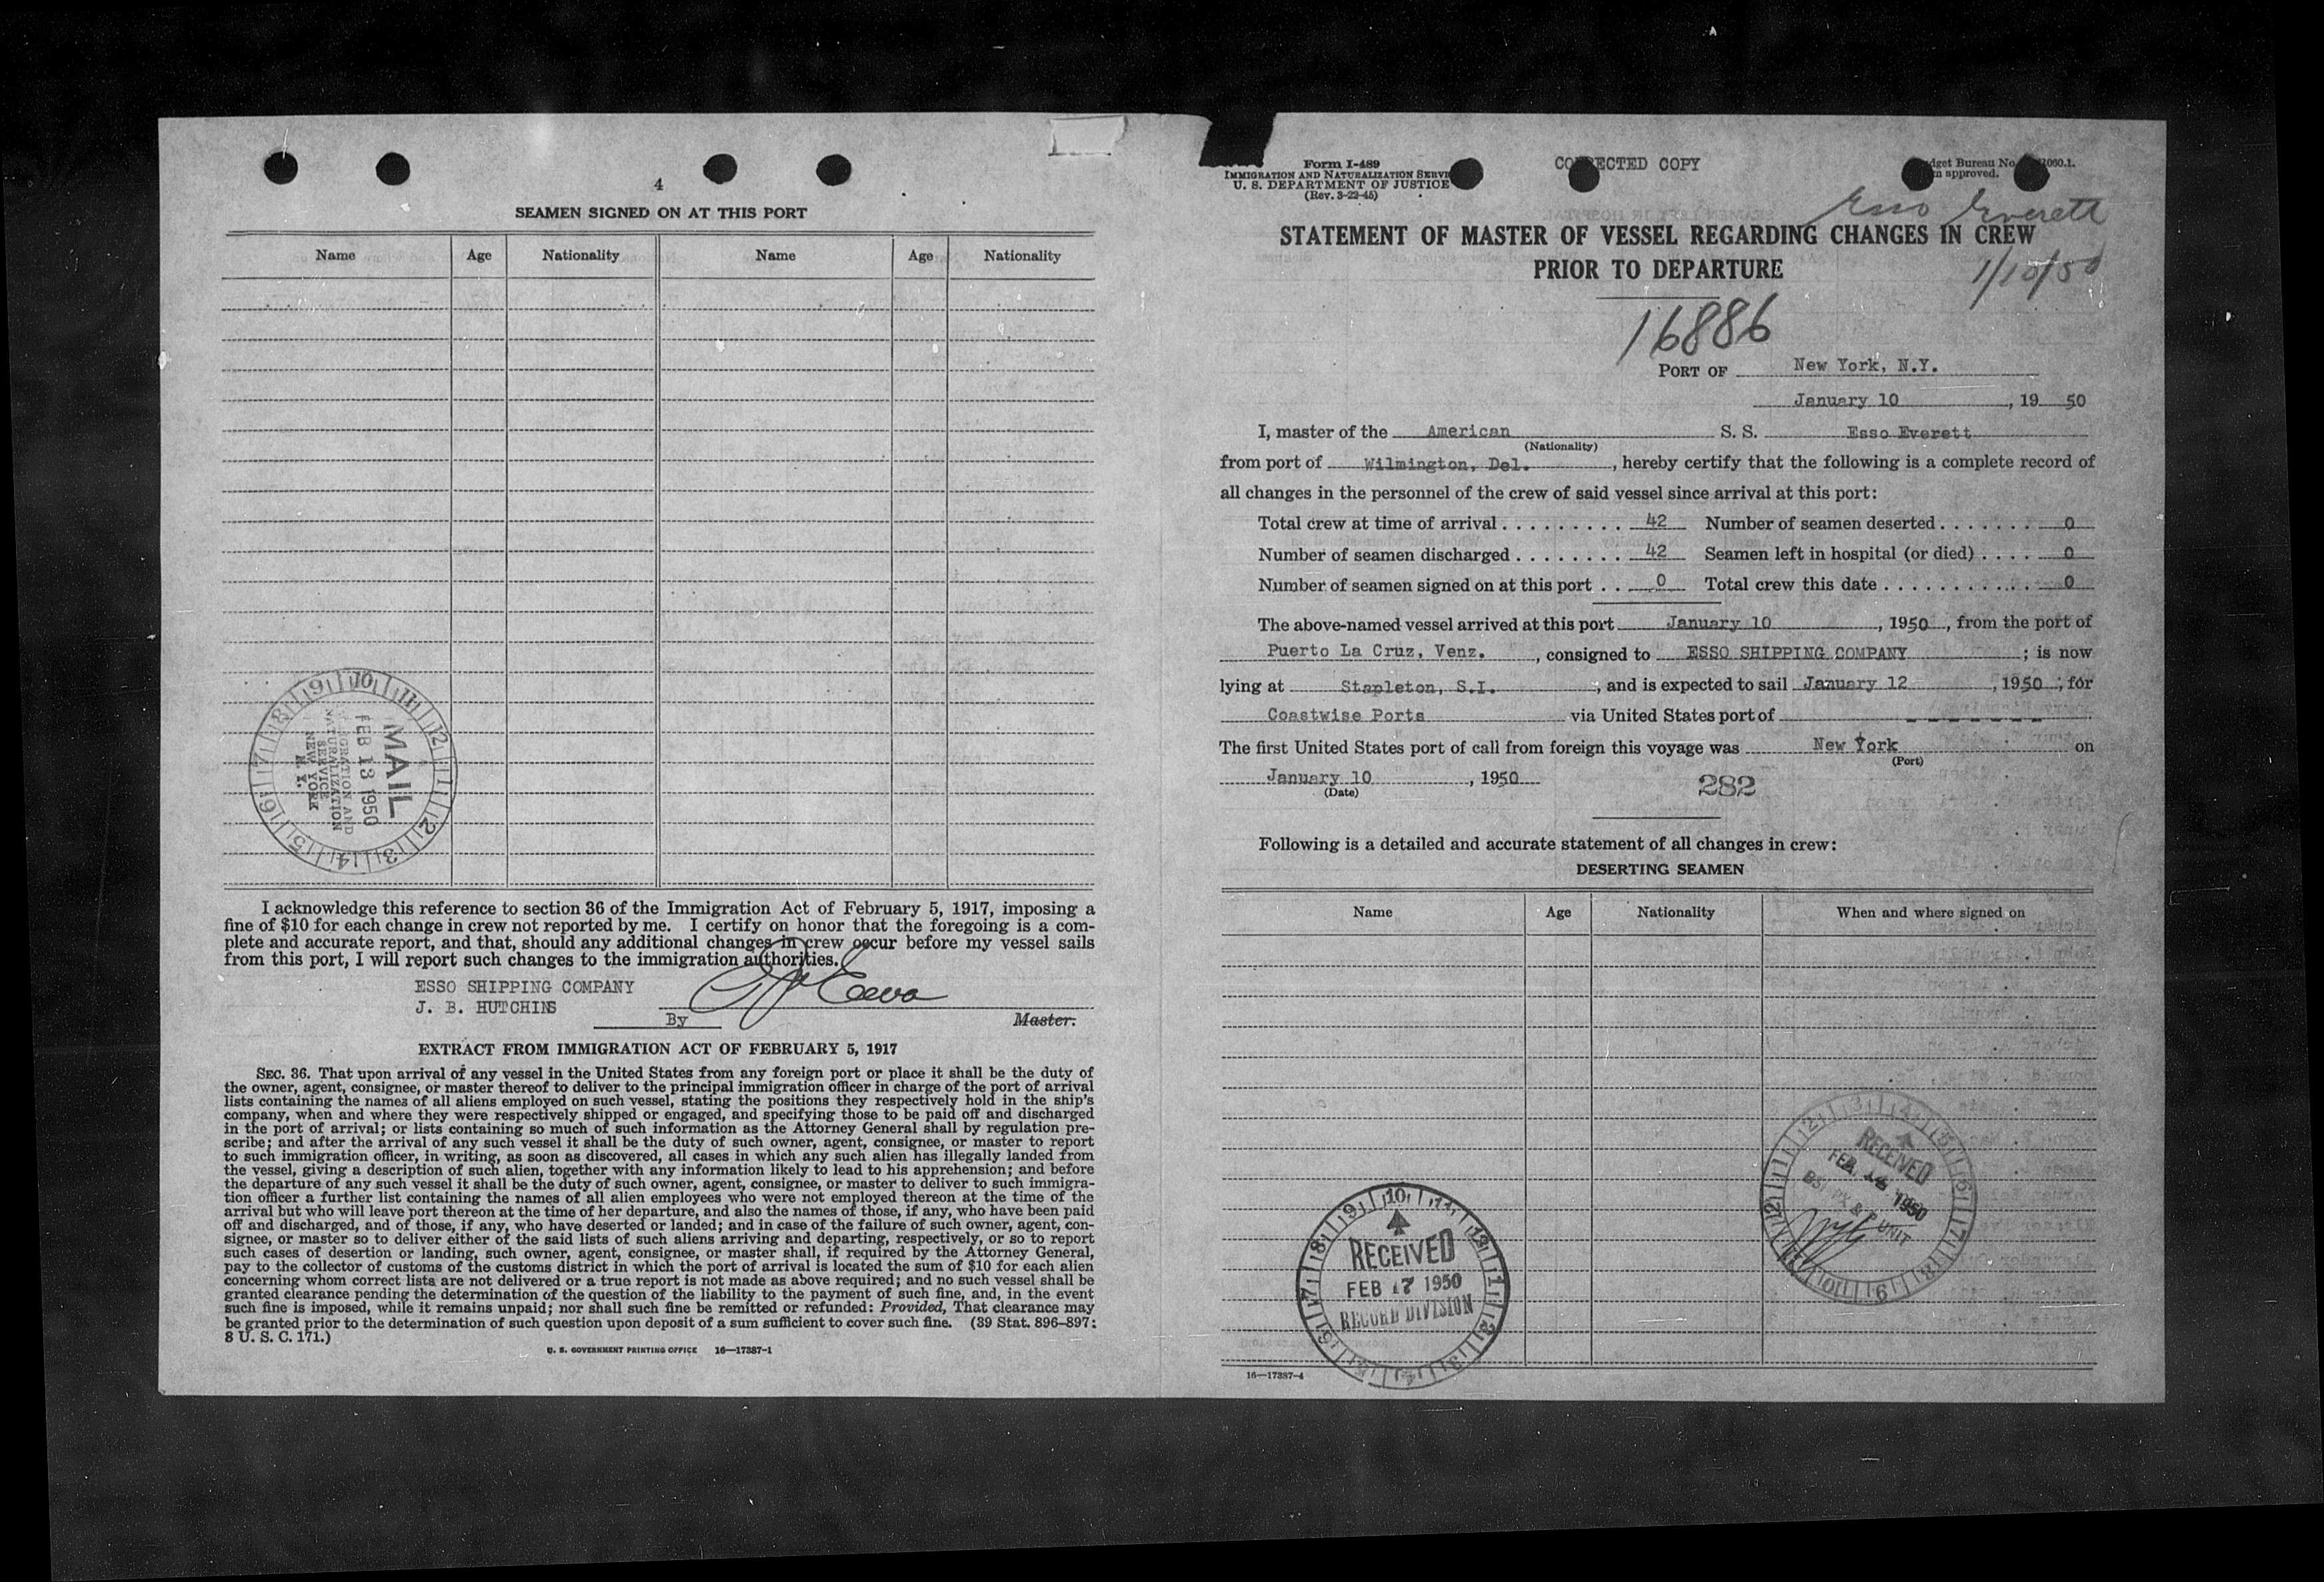 4
SEAMEN SIGNED ON AT THIS PORT
Name Age Nationality Name Age Nationality
MAIL
FEB 13 1950
IMMIGRATION AND
NATURALIZATION
SERVICE
NEW YORK
N. Y.
I acknowledge this reference to section 36 of the Immigration Act of February 5, 1917, imposing a
fine of $10 for each change in crew not reported by me. I certify on honor that the foregoing is a com-
plete and accurate report, and that, should any additional changes in crew occur before my vessel sails
from this port, I will report such changes to the immigration authorities.
ESSO SHIPPING COMPANY
J. B. HUTCHINS
By Master.
EXTRACT FROM IMMIGRATION ACT OF FEBRUARY 5, 1917
SEC. 36. That upon arrival of any vessel in the United States from any foreign port or place it shall be the duty of
the owner, agent, consignee, or master thereof to deliver to the principal immigration officer in charge of the port of arrival
lists containing the names of all aliens employed on such vessel, stating the positions they respectively hold in the ship's
company, when and where they were respectively shipped or engaged, and specifying those to be paid off and discharged
in the port of arrival; or lists containing so much of such information as the Attorney General shall by regulation pre-
scribe; and after the arrival of any such vessel it shall be the duty of such owner, agent, consignee, or master to report
to such immigration officer, in writing, as soon as discovered, all cases in which any such alien has illegally landed from
the vessel, giving a description of such alien, together with any information likely to lead to his apprehension; and before
the departure of any such vessel it shall be the duty of such owner, agent, consignee, or master to deliver to such immigra-
tion officer a further list containing the names of all alien employees who were not employed thereon at the time of the
arrival but who will leave port thereon at the time of her departure, and also the names of those, if any, who have been paid
off and discharged, and of those, if any, who have deserted or landed; and in case of the failure of such owner, agent, con-
signee, or master so to deliver either of the said lists of such aliens arriving and departing, respectively, or so to report
such cases of desertion or landing, such owner, agent, consignee, or master shall, if required by the Attorney General,
pay to the collector of customs of the customs district in which the port of arrival is located the sum of $10 for each alien
concerning whom correct lists are not delivered or a true report is not made as above required; and no such vessel shall be
granted clearance pending the determination of the question of the liability to the payment of such fine, and, in the event
such fine is imposed, while it remains unpaid; nor shall such fine be remitted or refunded: Provided, That clearance may
be granted prior to the determination of such question upon deposit of a sum sufficient to cover such fine. (39 Stat. 896–897;
8 U. S. C. 171.)
U. S. GOVERNMENT PRINTING OFFICE 16—17387-1
Form I-489
IMMIGRATION AND NATURALIZATION SERVI
U. S. DEPARTMENT OF JUSTICE
(Rev. 3-22-45)
CO ECTED COPY
dget Bureau No. 060.1.
m approved.
Esso Everett
STATEMENT OF MASTER OF VESSEL REGARDING CHANGES IN CREW
PRIOR TO DEPARTURE
1/10/50
16886
PORT OF New York, N.Y.
January 10, 19 50
I, master of the American S. S. Esso Everett
(Nationality)
from port of Wilmington, Del., hereby certify that the following is a complete record of
all changes in the personnel of the crew of said vessel since arrival at this port:
Total crew at time of arrival . . . . . . . . . 42 Number of seamen deserted . . . . . . . 0
Number of seamen discharged . . . . . . . . 42 Seamen left in hospital (or died) . . . . 0
Number of seamen signed on at this port . . 0 Total crew this date . . . . . . . . . . . . 0
The above-named vessel arrived at this port January 10, 1950, from the port of
Puerto La Cruz, Venz., consigned to ESSO SHIPPING COMPANY; is now
lying at Stapleton, S.I., and is expected to sail January 12, 1950, for
Coastwise Ports via United States port of - - - - - - -
The first United States port of call from foreign this voyage was New York on
(Port)
January 10, 1950
(Date)
282
Following is a detailed and accurate statement of all changes in crew:
DESERTING SEAMEN
Name Age Nationality When and where signed on
RECEIVED
FEB 1950
UNIT
RECEIVED
FEB 17 1950
RECORD DIVISION
16—17387-4